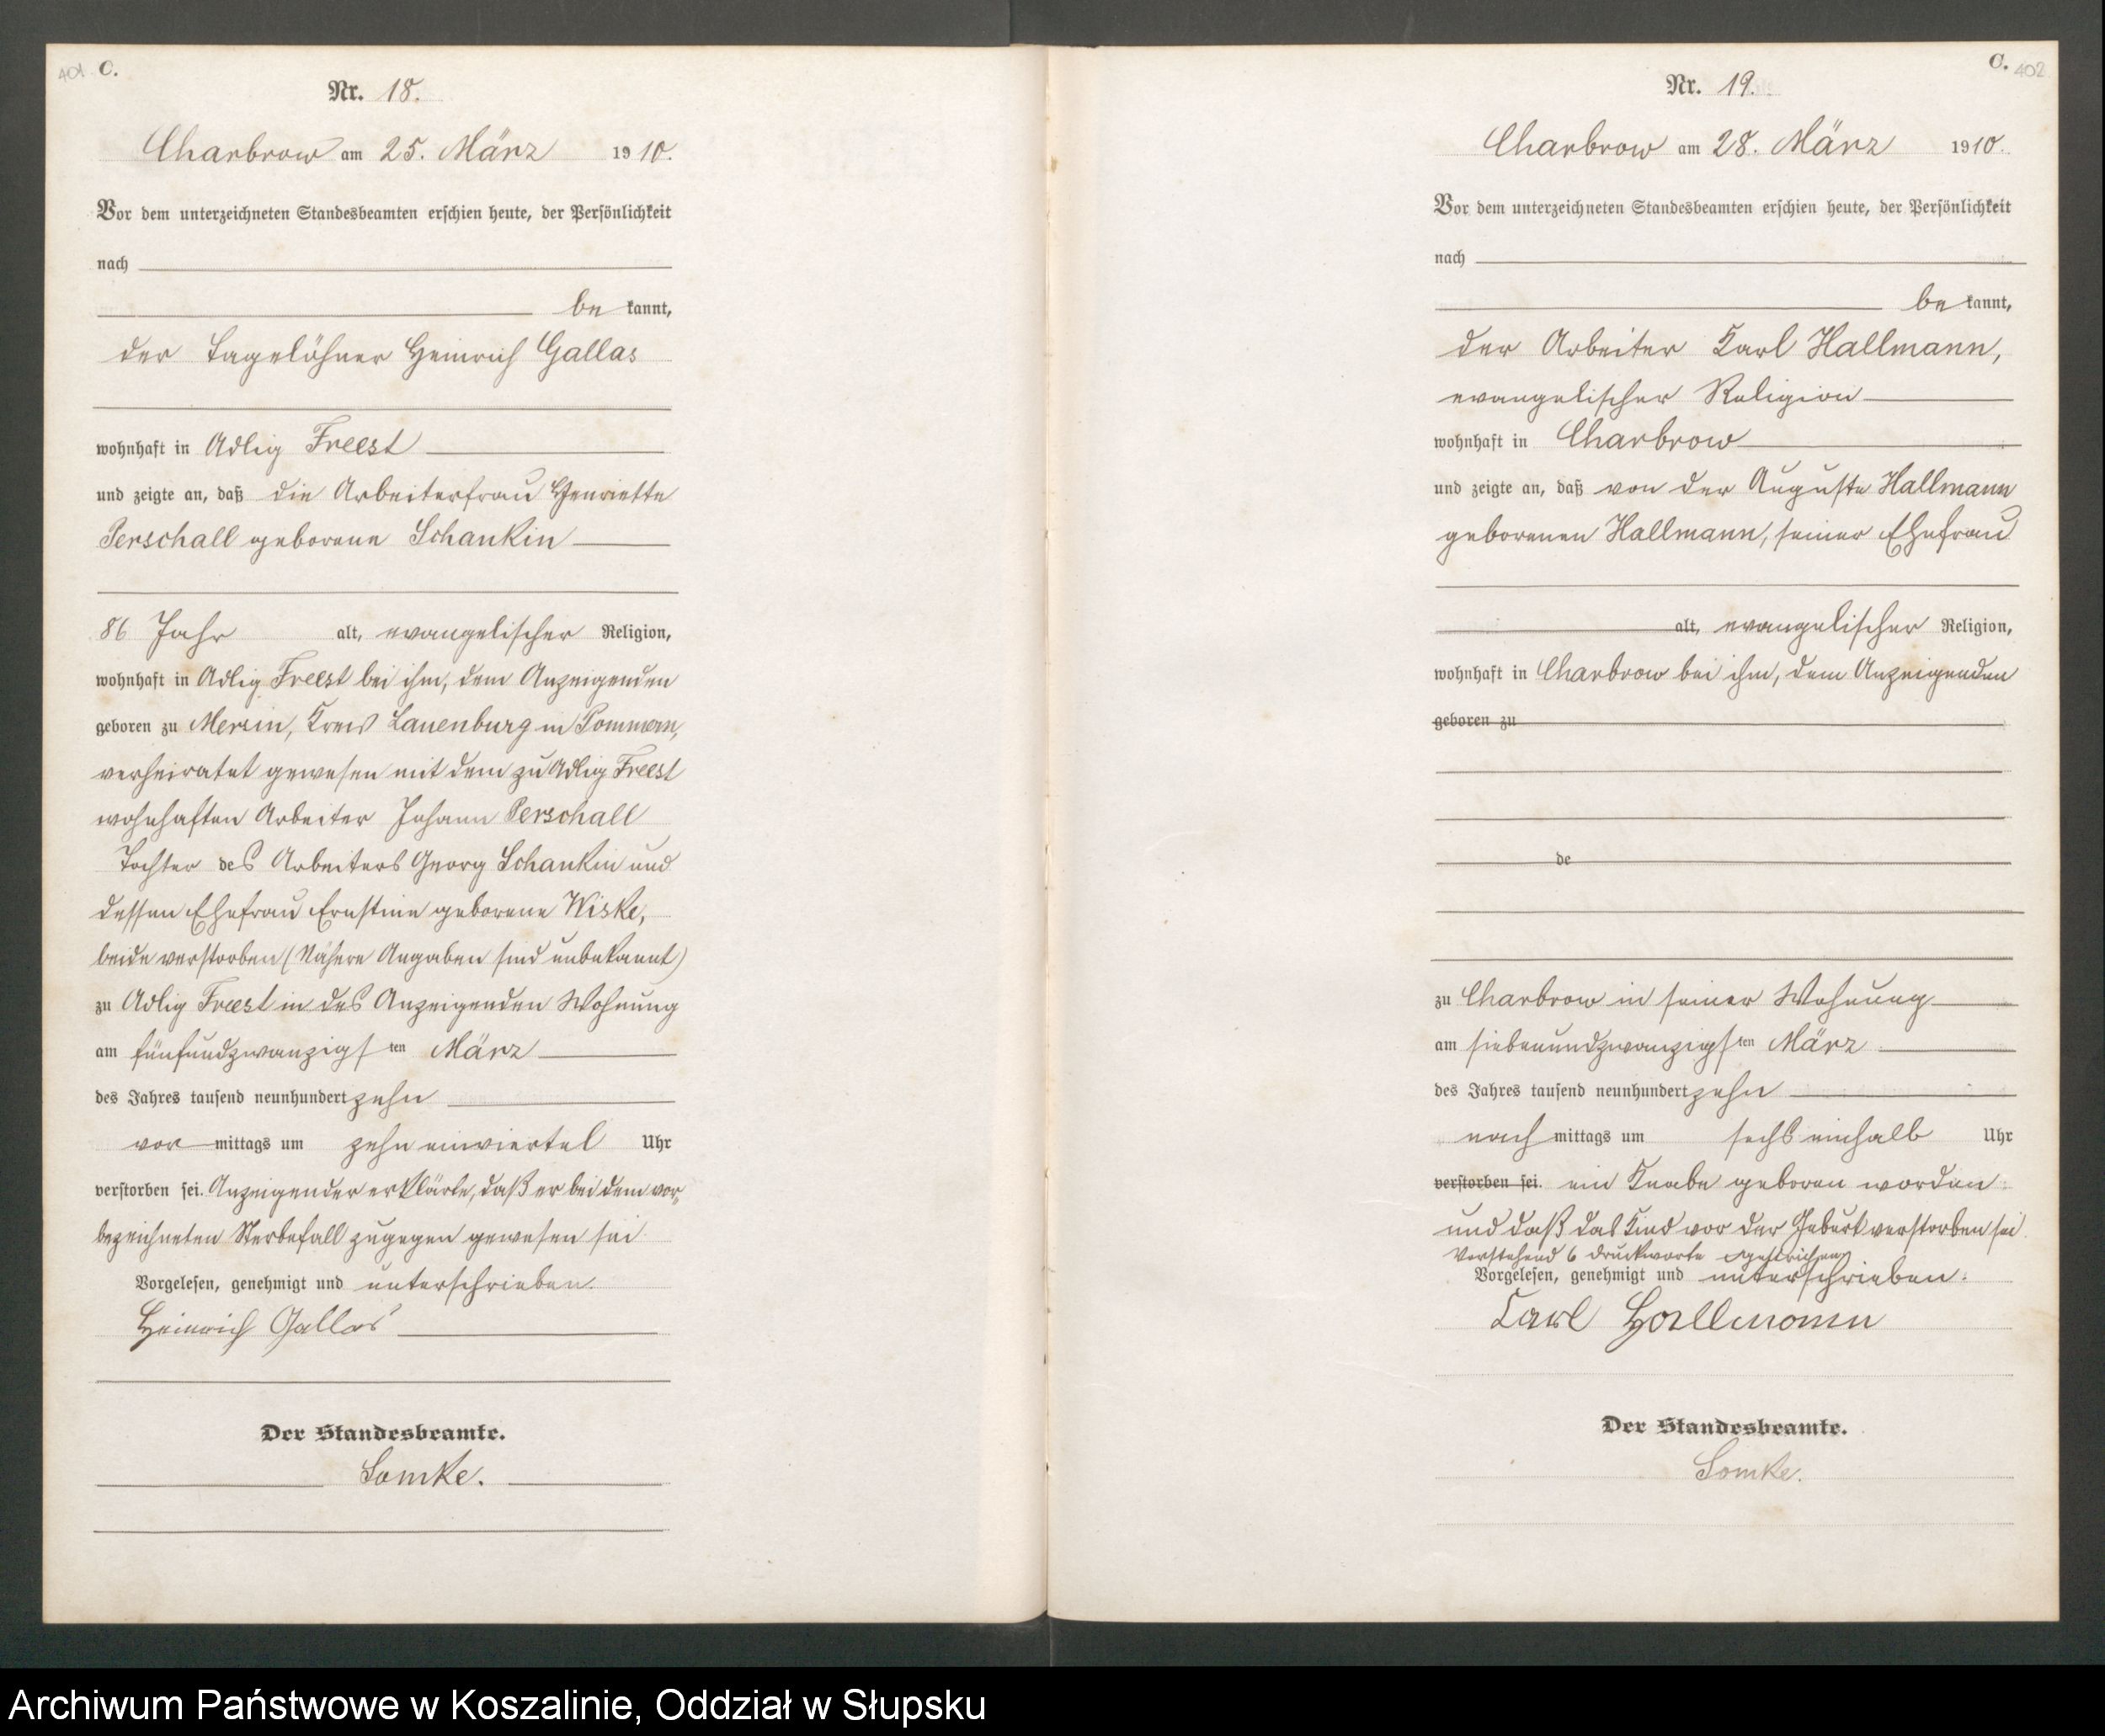 401 C.
Nr. 18.
Charbrow am 25. März 1910.
Vor dem unterzeichneten Standesbeamten erschien heute, der Persönlichkeit
nach
be kannt,
der Tagelöhner Heinrich Gallas
wohnhaft in Adlig Freest
und zeigte an, daß die Arbeiterfrau Henriette
Perschall geborene Schankin
86 Jahr alt, evangelischer Religion,
wohnhaft in Adlig Freest bei ihm, dem Anzeigenden
geboren zu Mersin, Kreis Lauenburg in Pommern,
verheiratet gewesen mit dem zu Adlig Freest
wohnhaften Arbeiter Johann Perschall
Tochter des Arbeiters Georg Schankin und
dessen Ehefrau Ernstine geborene Wiske,
beide verstorben (Nähere Angaben sind unbekannt)
zu Adlig Freest in des Anzeigenden Wohnung
am fünfundzwanzigsten März
des Jahres tausend neunhundert zehn
vor mittags um zehn einviertel Uhr
verstorben sei. Anzeigender erklärte, daß er bei dem vor-
bezeichneten Sterbefall zugegen gewesen sei
Vorgelesen, genehmigt und unterschrieben.
Heinrich Gallas
Der Standesbeamte.
Lomke.
C. 402
Nr. 19.
Charbrow am 28. März 1910.
Vor dem unterzeichneten Standesbeamten erschien heute, der Persönlichkeit
nach
be kannt,
der Arbeiter Karl Hallmann,
evangelischer Religion
wohnhaft in Charbrow
und zeigte an, daß von der Auguste Hallmann
geborenen Hallmann, seiner Ehefrau
alt, evangelischer Religion,
wohnhaft in Charbrow bei ihm, dem Anzeigenden
geboren zu
de
zu Charbrow in seiner Wohnung
am siebenundzwanzigsten März
des Jahres tausend neunhundert zehn
nach mittags um sechs einhalb Uhr
verstorben sei. ein Knabe geboren worden
und daß das Kind vor der Geburt verstorben sei
Vorstehend 6 Druckworte gestrichen
Vorgelesen, genehmigt und unterschrieben.
Karl Hallmann
Der Standesbeamte.
Lomke.
Archiwum Państwowe w Koszalinie, Oddział w Słupsku